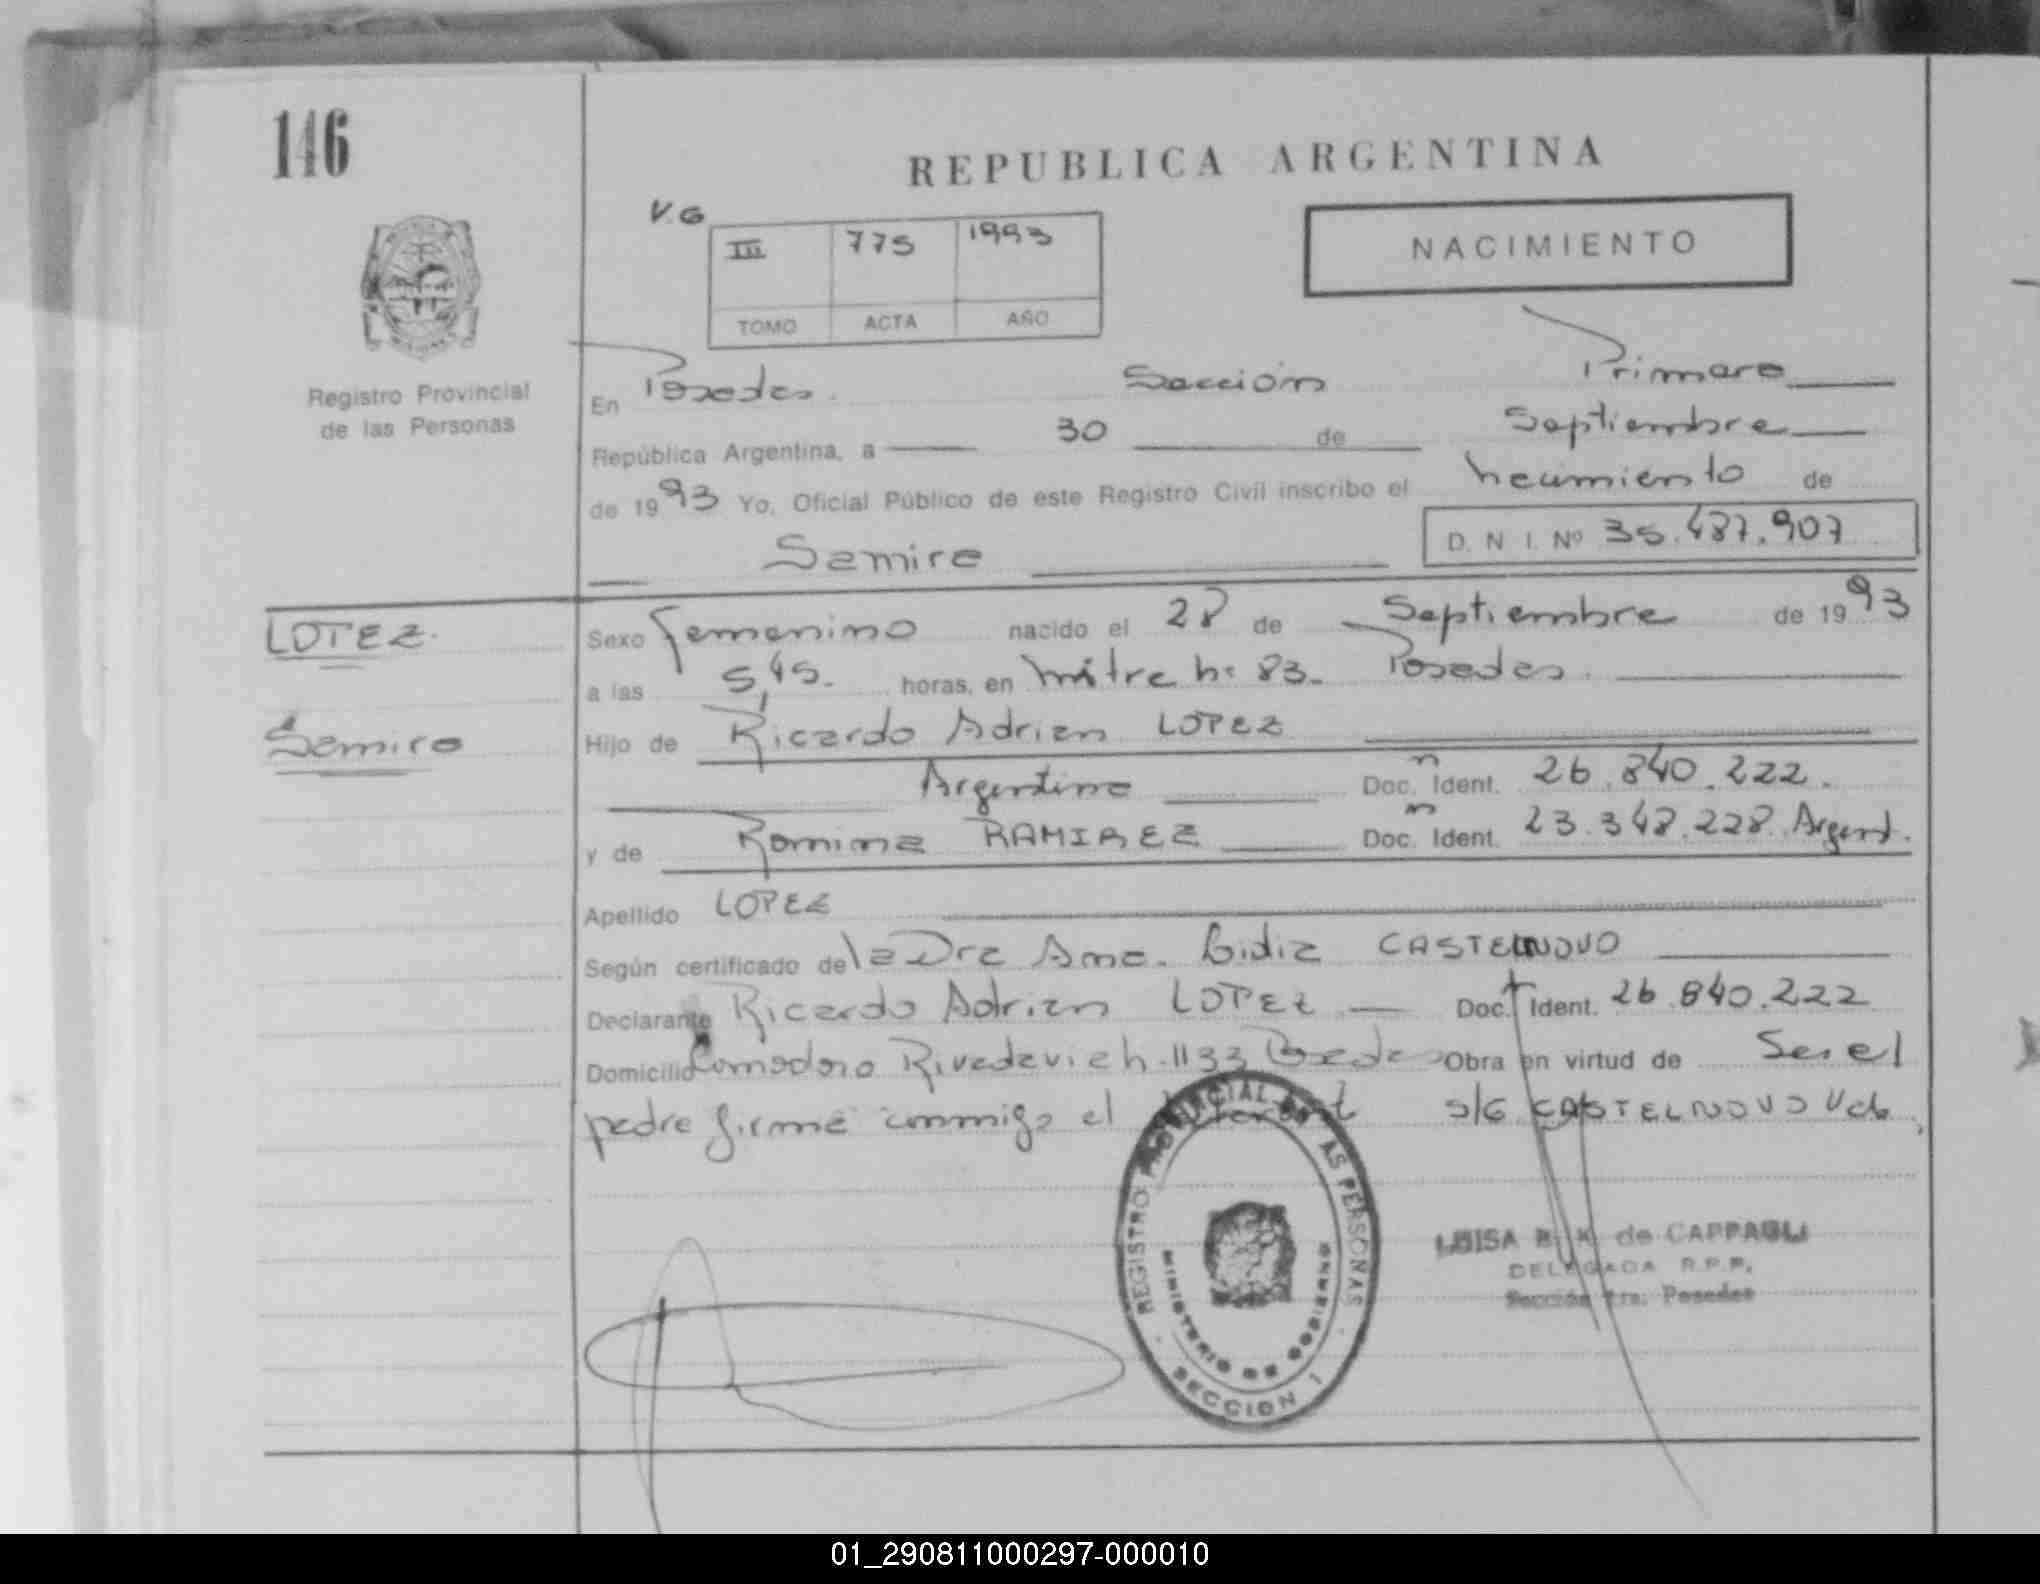 146
REPUBLICA ARGENTINA
V.G
III 775 1993
TOMO ACTA AÑO
NACIMIENTO
Registro Provincial
de las Personas
En Posadas Sección Primera
República Argentina, a 30 de Septiembre
de 1993 Yo, Oficial Público de este Registro Civil inscribo el nacimiento de
Samira D. N I. Nº 35.487.907
LOPEZ
Samira
Sexo femenino nacido el 28 de Septiembre de 1993
a las 5,45. horas, en mitre nº 83. Posadas.
Hijo de Ricardo Adrian LOPEZ
Argentino Doc. n Ident. 26.840.222.
y de Romina RAMIREZ Doc. n Ident. 23.348.228. Argent.
Apellido LOPEZ
Según certificado de la Dra Ana. Lidia CASTELNOVO
Declarante Ricardo Adrian LOPEZ Doc. Ident. 26.840.222
Domicilio Comodoro Rivadavia n. 1133 Posadas Obra en virtud de Ser el
padre firma conmigo el s/G CASTELNOVO Vale
REGISTRO PROVINCIAL DE LAS PERSONAS
MINISTERIO DE GOBIERNO
SECCION 1
LUISA B. K. de CAPPAGLI
DELEGADA R.P.P.
Sección 1ra. Posadas
01_290811000297-000010